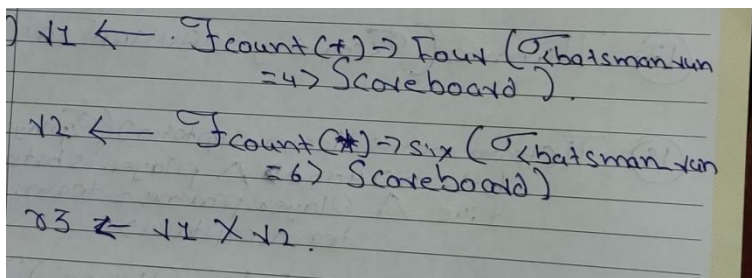 ) r1 ← ℱcount(*) → Four (σ<batsman_run
=4> Scoreboard).
r2 ← ℱcount(*) → six (σ<batsman_run
=6> Scoreboard)
r3 ← r1 X r2.